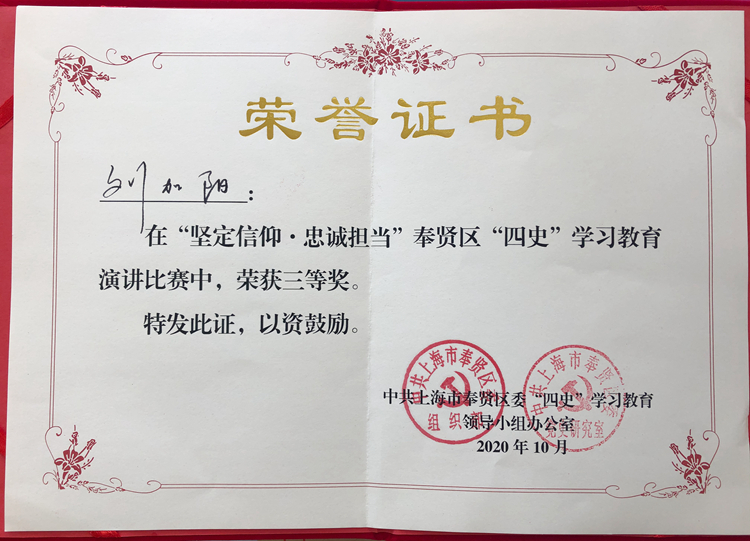 荣誉证书
刘加阳：
在“坚定信仰·忠诚担当”奉贤区“四史”学习教育
演讲比赛中，荣获三等奖。
特发此证，以资鼓励。
中共上海市奉贤区委
组织部
中共上海市奉贤区委
党史研究室
中共上海市奉贤区委“四史”学习教育
领导小组办公室
2020年10月